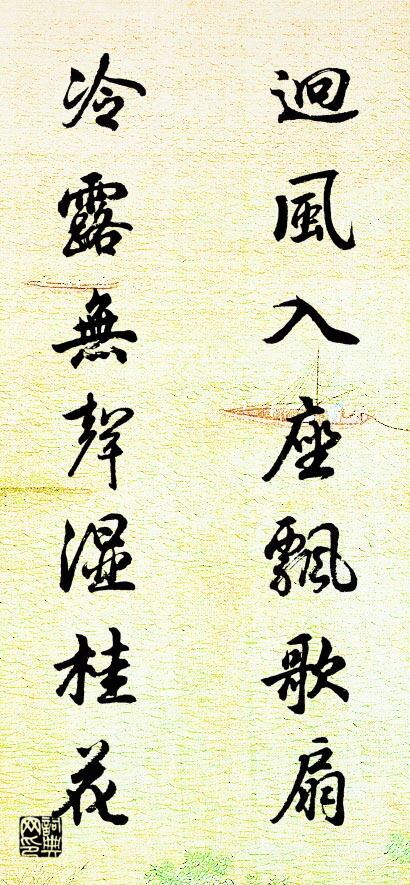 迥風入座飄歌扇
冷露無聲湿桂花
詞典
网印